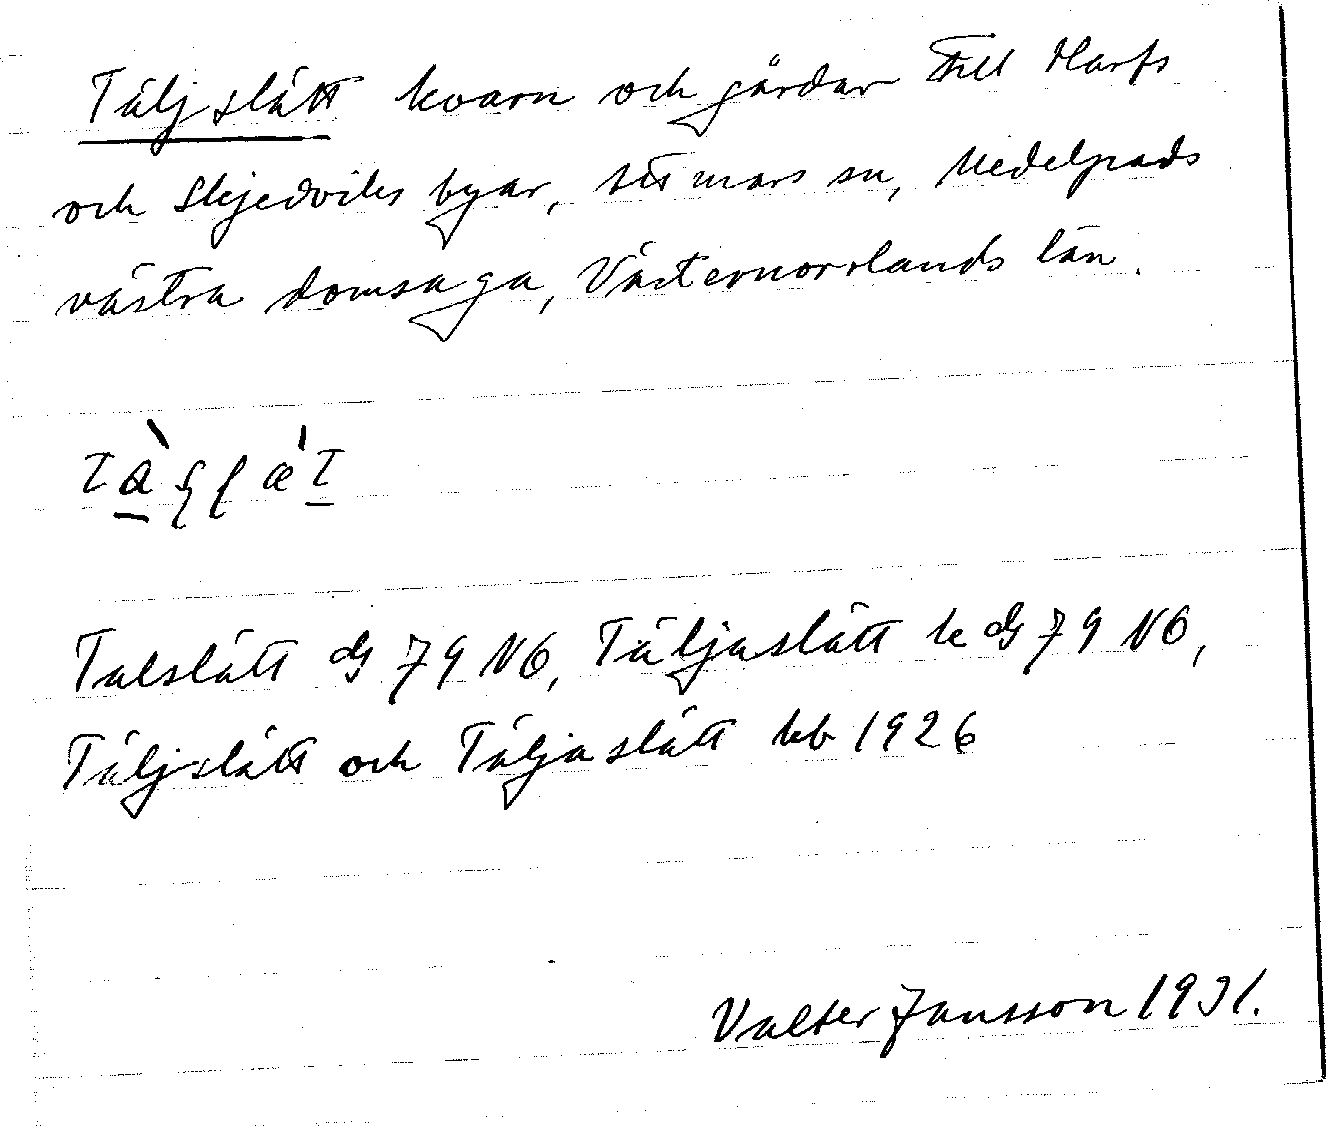 Täljslätt kvarn och gårdar till Harfs
och Skjedviks byar, Attmars sn, Medelpads
västra domsaga, Västernorrlands län.
Talslätt dG 79 NO, Täljaslätt k dG 79 NO,
Täljslätt och Täljaslätt kb 1926
Valter Jansson 1931.